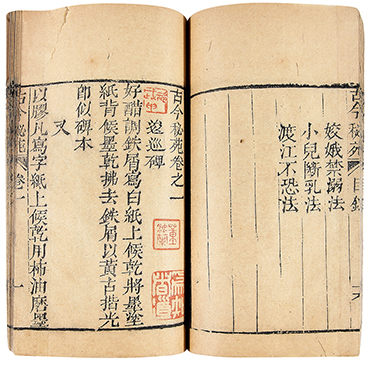 古今秘苑 目錄
姣娥禁溺法
小兒斷乳法
渡江不恐法
古今秘苑卷之一
逡巡碑
好醋調鉄屑寫白紙上候乾將墨塗
紙背候墨乾拂去鉄屑以黃占揩光
即似碑本
又
以膠凡寫字紙上候乾用柿油磨墨
古今秘苑 卷一 一